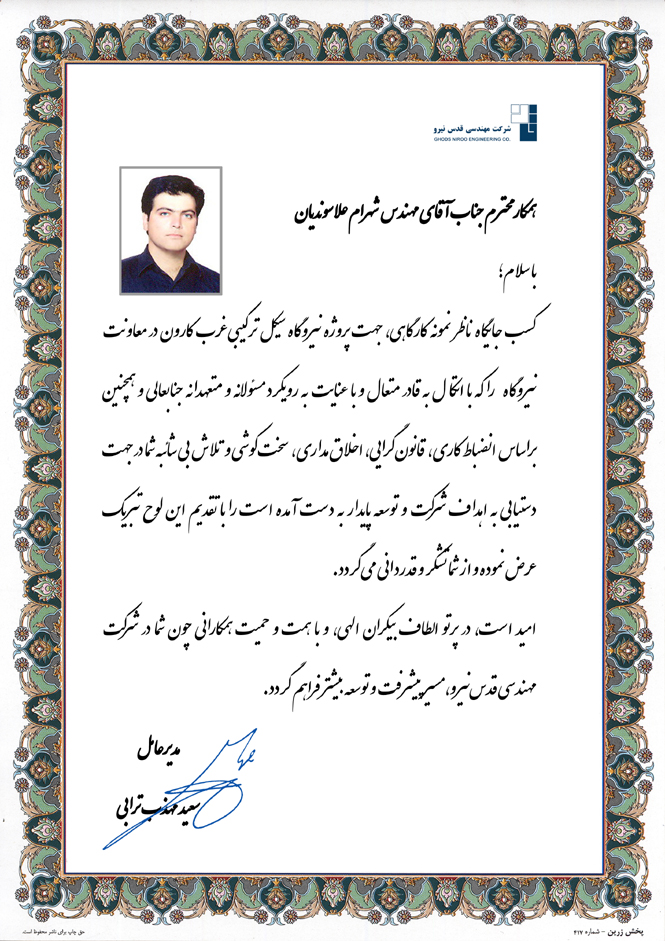 شرکت مهندسی قدس نیرو
GHODS NIROO ENGINEERING CO.
همکار محترم جناب آقای مهندس شهرام علاسوندیان
با سلام؛
کسب جایگاه ناظر نمونه کارگاهی، جهت پروژه نیروگاه سیکل ترکیبی غرب کارون در معاونت
نیروگاه را که با اتکال به قادر متعال و با عنایت به رویکرد مسئولانه و متعهدانه جنابعالی و همچنین
براساس انضباط کاری، قانون گرایی، اخلاق مداری، سخت کوشی و تلاش بی شائبه شما در جهت
دستیابی به اهداف شرکت و توسعه پایدار به دست آمده است را با تقدیم این لوح تبریک
عرض نموده و از شما تشکر و قدردانی می گردد.
امید است، در پرتو الطاف بیکران الهی، و با همت و حمیت همکارانی چون شما در شرکت
مهندسی قدس نیرو، مسیر پیشرفت و توسعه بیشتر فراهم گردد.
مدیرعامل
سعید مهذب ترابی
پخش زرین - شماره ۴۱۷
حق چاپ برای ناشر محفوظ است.